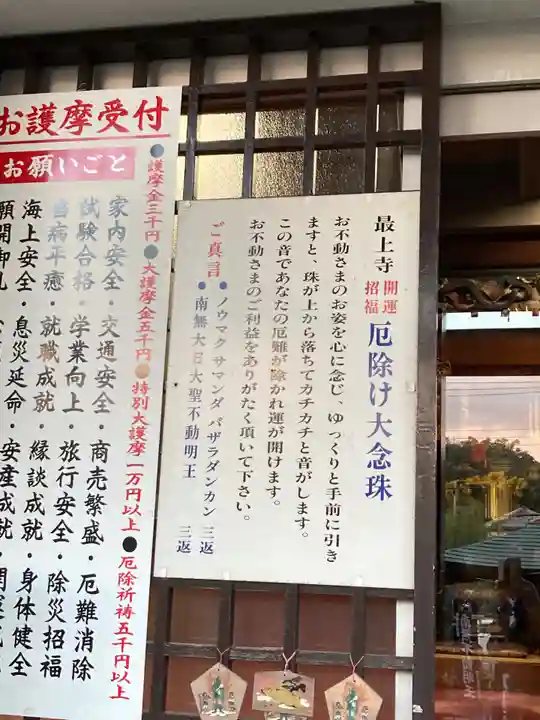 お護摩受付
お願いごと
●護摩金三千円●大護摩金五千円●特別大護摩一万円以上●厄除祈祷五千円以上
家内安全・交通安全・商売繁盛・厄難消除
試験合格・学業向上・旅行安全・除災招福
当病平癒・就職成就・縁談成就・身体健全
海上安全・息災延命・安産成就・開運
願開御札
最上寺 開運招福 厄除け大念珠
お不動さまのお姿を心に念じ、ゆっくりと手前に引き
ますと、珠が上から落ちてカチカチと音がします。
この音であなたの厄難が除かれ運が開けます。
お不動さまのご利益をありがたく頂いて下さい。
ご真言
●ノウマク サマンダ バザラダンカン 三返
●南無大日大聖不動明王 三返